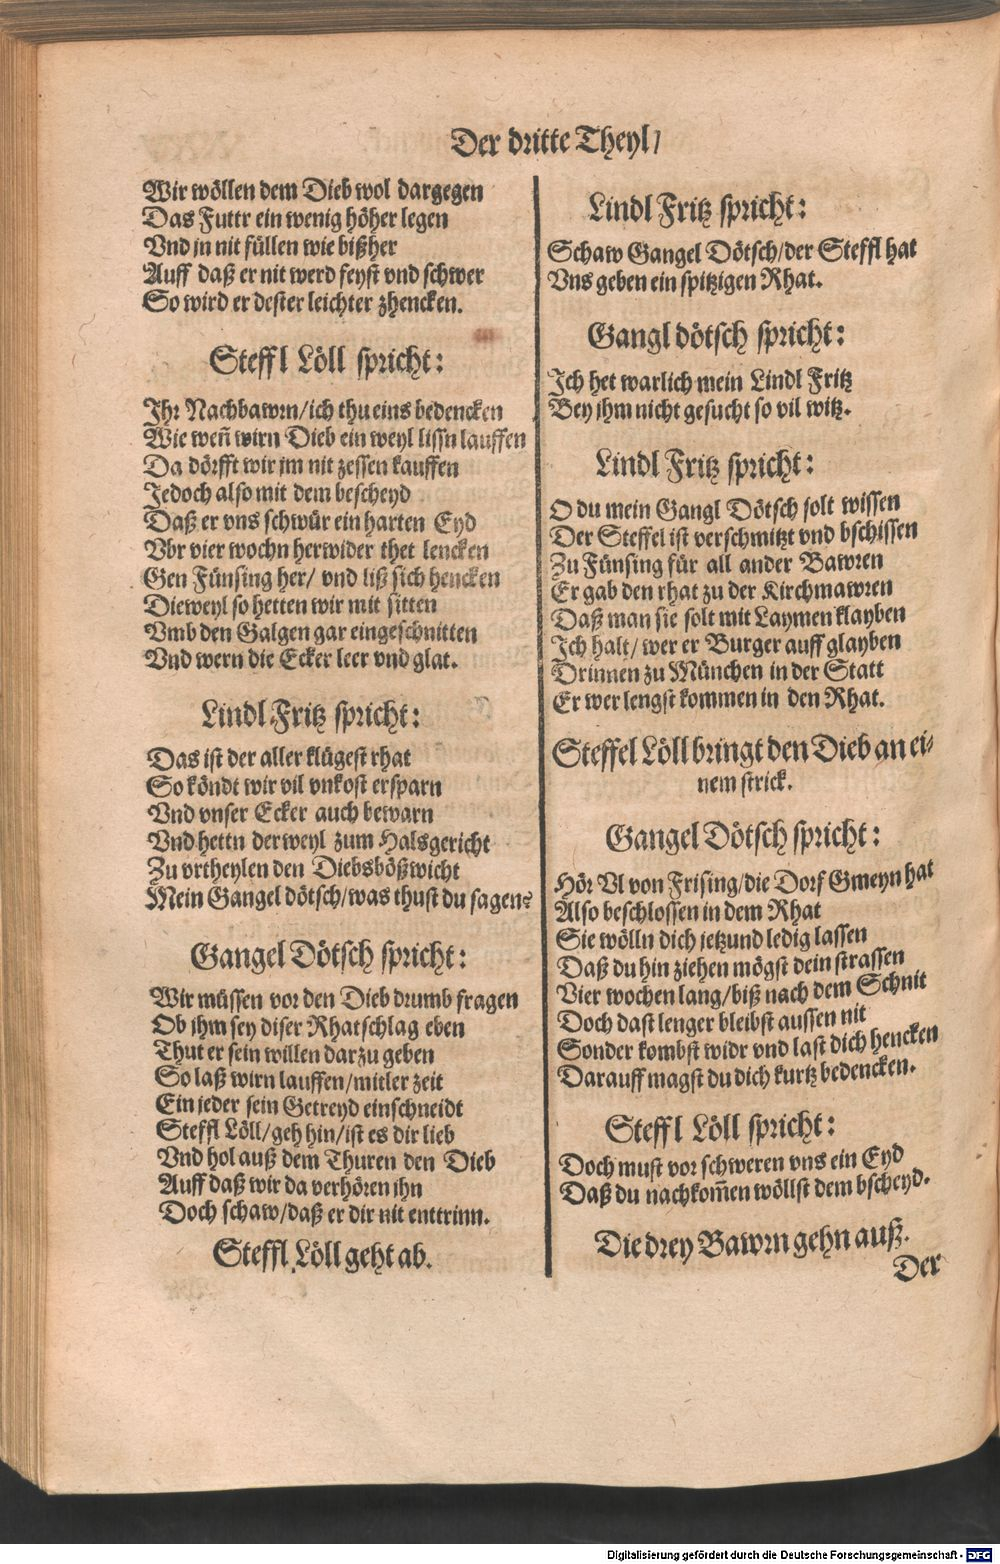 Der dritte Theyl/
Wir wöllen dem Dieb wol dargegen
Das Futtr ein wenig höher legen
Vnd jn nit füllen wie bißher
Auff daß er nit werd feyst vnd schwer
So wird er dester leichter zhencken.
Steffl Löll spricht:
Ihr Nachbawrn/ich thu eins bedencken
Wie weñ wirn Dieb ein weyl lissn lauffen
Da dörfft wir jm nit zessen kauffen
Jedoch also mit dem bescheyd
Daß er vns schwür ein harten Eyd
Vbr vier wochn herwider thet lencken
Gen Fünsing her/ vnd liß sich hencken
Dieweyl so hetten wir mit sitten
Vmb den Galgen gar eingeschnitten
Vnd wern die Ecker leer vnd glat.
Lindl Fritz spricht:
Das ist der aller klügest rhat
So köndt wir vil vnkost ersparn
Vnd vnser Ecker auch bewarn
Vnd hettn derweyl zum Halsgericht
Zu vrtheylen den Diebsbößwicht
Mein Gangel dötsch/was thust du sagen?
Gangel Dötsch spricht:
Wir müssen vor den Dieb drumb fragen
Ob jhm sey diser Rhatschlag eben
Thut er sein willen darzu geben
So laß wirn lauffen/mitler zeit
Ein jeder sein Getreyd einschneidt
Steffl Löll/geh hin/ist es dir lieb
Vnd hol auß dem Thuren den Dieb
Auff daß wir da verhören ihn
Doch schaw/daß er dir nit enttrinn.
Steffl Löll geht ab.
Lindl Fritz spricht:
Schaw Gangel Dötsch/der Steffl hat
Vns geben ein spitzigen Rhat.
Gangl dötsch spricht:
Ich het warlich mein Lindl Fritz
Bey jhm nicht gesucht so vil witz.
Lindl Fritz spricht:
O du mein Gangl Dötsch solt wissen
Der Steffel ist verschmitzt vnd bschissen
Zu Fünsing für all ander Bawren
Er gab den rhat zu der Kirchmawren
Daß man sie solt mit Laymen klayben
Ich halt/ wer er Burger auff glayben
Drinnen zu München in der Statt
Er wer lengst kommen in den Rhat.
Steffel Löll bringt den Dieb an ei-
nem strick.
Gangel Dötsch spricht:
Hör Vl von Frising/die Dorf Gmeyn hat
Also beschlossen in dem Rhat
Sie wölln dich jetzund ledig lassen
Daß du hin ziehen mögst dein strassen
Vier wochen lang/biß nach dem Schnit
Doch dast lenger bleibst aussen nit
Sonder kombst widr vnd last dich hencken
Darauff magst du dich kurtz bedencken.
Steffl Löll spricht:
Doch must vor schweren vns ein Eyd
Daß du nachkom̃en wöllst dem bscheyd.
Die drey Bawrn gehn auß.
Der
Digitalisierung gefördert durch die Deutsche Forschungsgemeinschaft - DFG